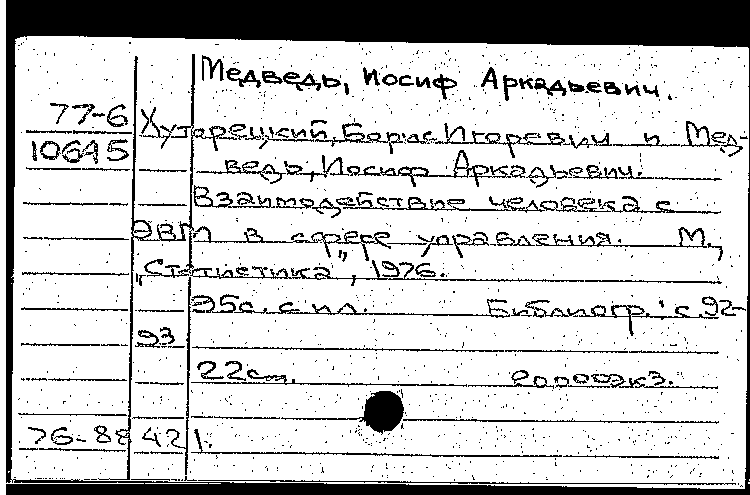 Медведь, Иосиф Аркадьевич.
77-6
10645
Хуторецкий, Борис Игоревич и Мед-
ведь, Иосиф Аркадьевич.
Взаимодействие человека с
ЭВМ в сфере управления. М.,
„Статистика", 1976.
95с. с ил. Библиогр.: с 92-
93
22см. 20000экз.
76-88421.